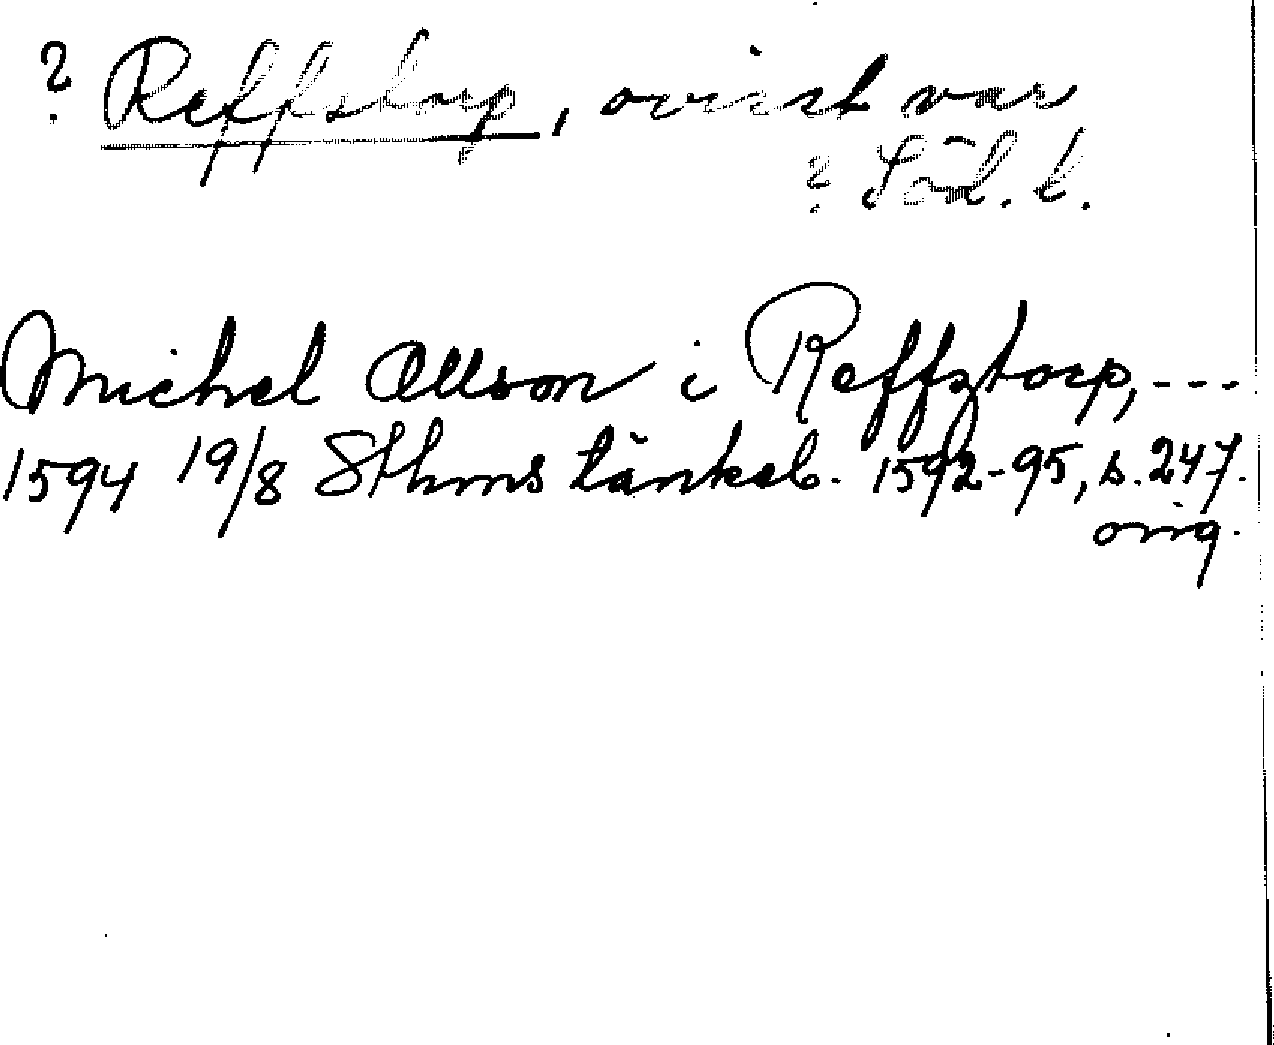 ? Reffstorp, ovisst var
? Söd. t.
Michel Ollson i Reffztorp, ---
1594 19/8 Sthms tänkeb. 1592-95, s. 247.
orig.